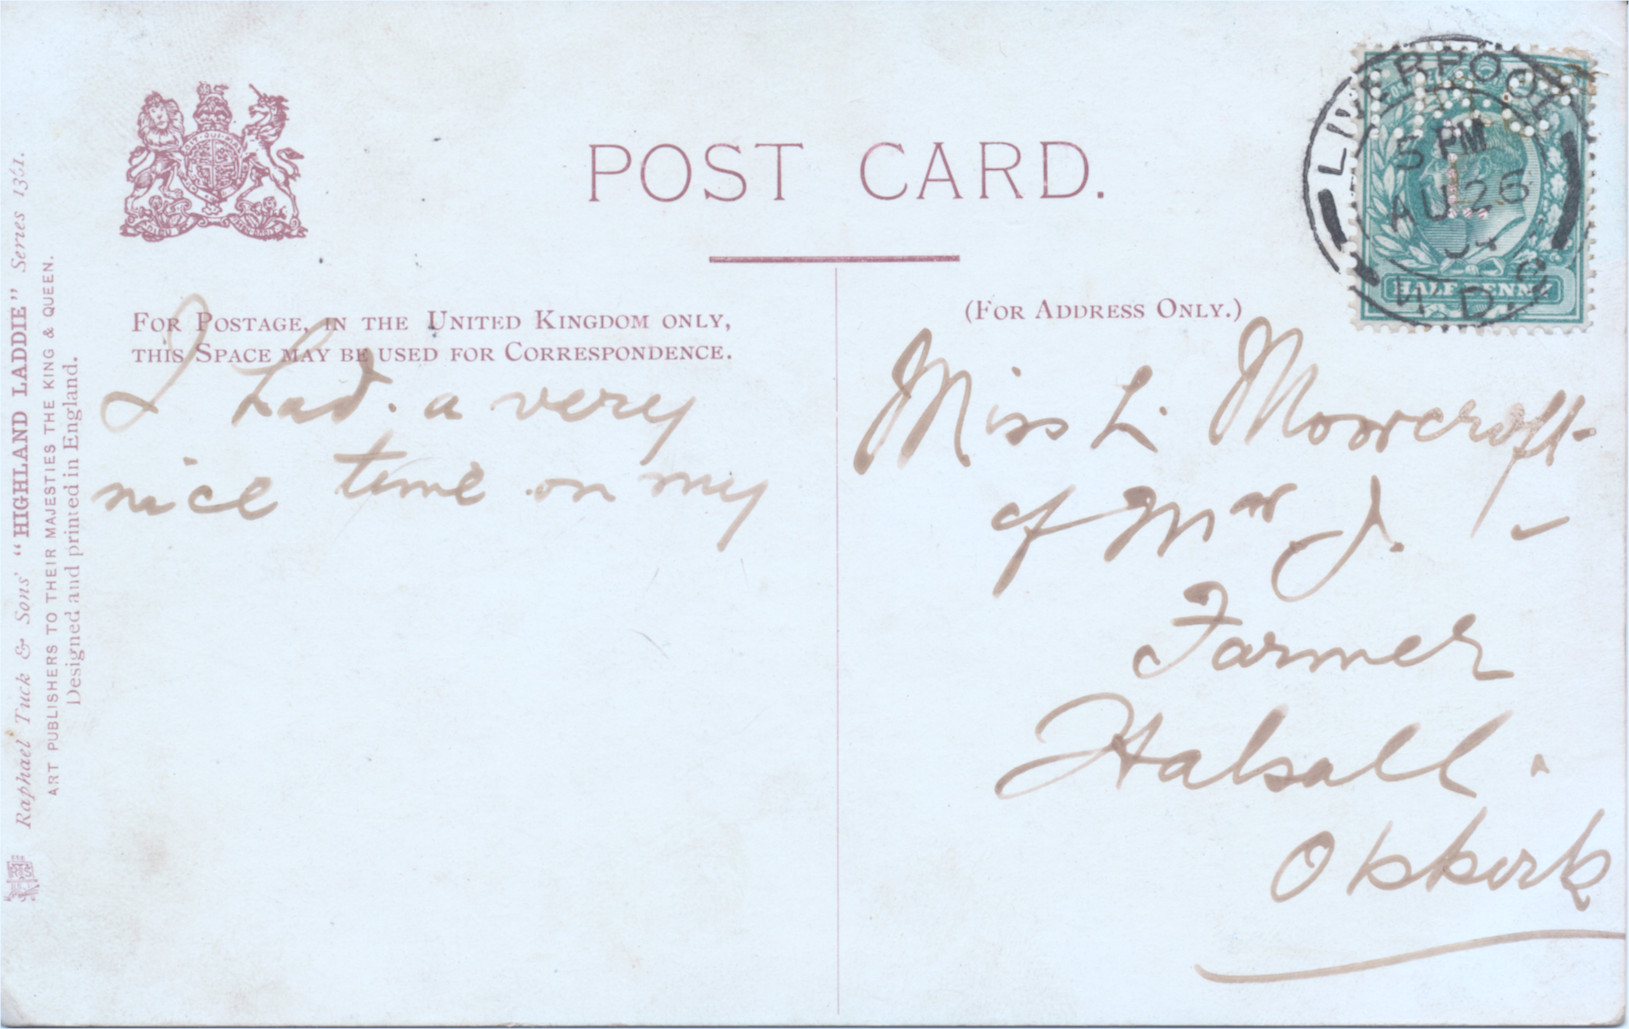 POST CARD.
FOR POSTAGE, IN THE UNITED KINGDOM ONLY,
THIS SPACE MAY BE USED FOR CORRESPONDENCE.
(FOR ADDRESS ONLY.)
I had. a very
nice time on my
Miss L. Moorcroft
c/o Mr J.
Farmer
Halsall.
LIVERPOOL
5 PM
AU 26
HALF PENNY
Raphael Tuck & Sons' "HIGHLAND LADDIE" Series 1361.
ART PUBLISHERS TO THEIR MAJESTIES THE KING & QUEEN.
Designed and printed in England.